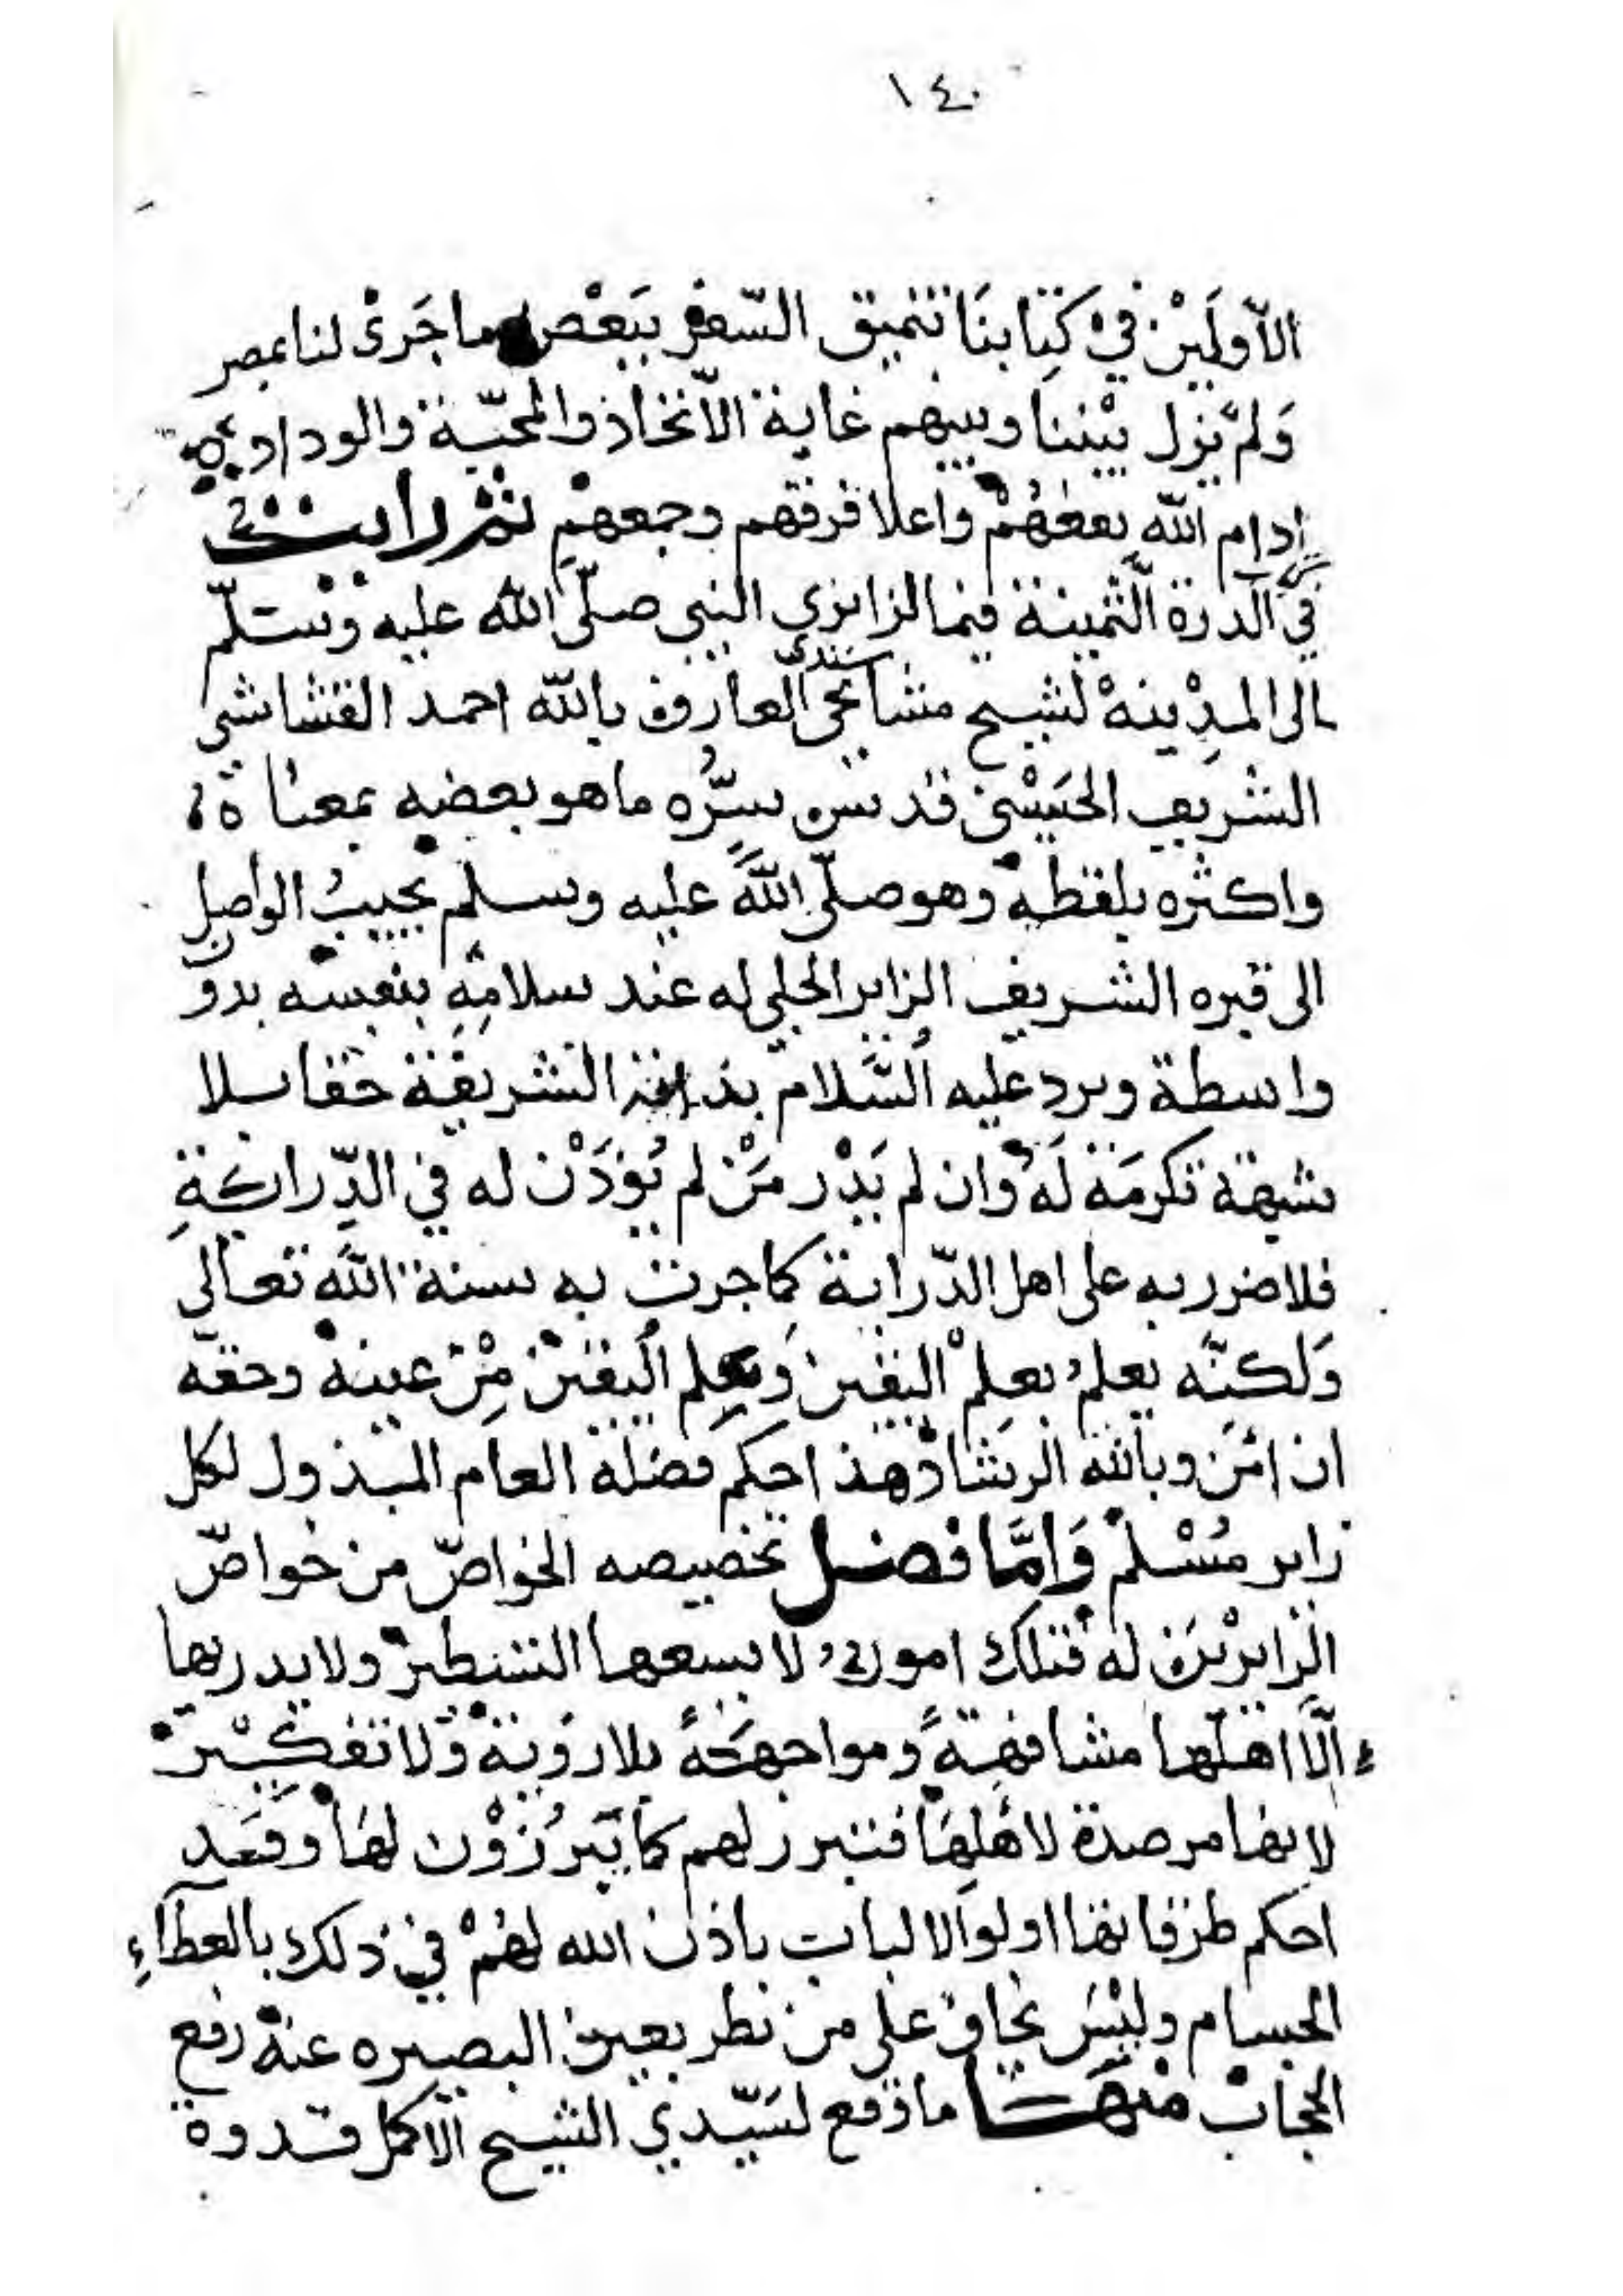 ١٤٠
الأولَيْن في كِتابنَا تنميق السّفر ببَعْض ما جَرىْ لنا بمصر
وَلم يزل بيْننا وبينهم غاية الاتخاذ والمحبّة والوداد
ادام الله نفعهُمْ واعلا فرقهم وجمعهمْ ثم رايت في
في الدرة الثمينة فيما لزائري النبي صلّى الله عليه وسلّم
الى المدِينهْ لشيخ مشايخي سندي العارف بالله احمد القشاشي
الشريف الحسيْنى قدس سِرُّه ما هو بعضه بمعناه
واكثره بلفظه وهو صلّى اللهَّ عليه وسلم يجيبُ الواصل
الى قبره الشريف الزاير الجلي له عند سلامِهِ بنفسه بدون
واسطة ويرد عليه السَّلام بذاته الشريفة حقا بلا
شبهة تكرمَة لَهُ وان لم يَدْر مَنْ لم يُؤذَنْ له في الدِّرايةِ
فلا ضرر به على اهل الدّراية كما جرت به سنة الله تعالى
وَلكنّه يعلمُ بعلمْ اليقين وَيعلم اليقين مِنْ عينه وحقه
ان امَن وبالله الرشاد هذا حكم فضله العام المبذول لكل
زاير مُسْلم وَامَّا فضل تخصيصه الخواصّ من خواصّ
الزايرْين له فتلك امور لا يسعها التسطير ولا يدريها
إلّا اهلها مشافهةً ومواجهَةً بلا رويّة ولا تفكِيْر
لانها مرصدة لاهْلِهَا فتبرز لهم كما يَبرُزوْن لهَا وقَد
احكم طرقاتها اولوا الالباب باذن الله لهُمْ في ذلك بالعطآءِ
الجسام وليْسَ بخاف على من نظر بعين البصيره عنهْ رفع
الحجاب منهَا ما وقع لسَيّدي الشيخ الاكمل قدوة